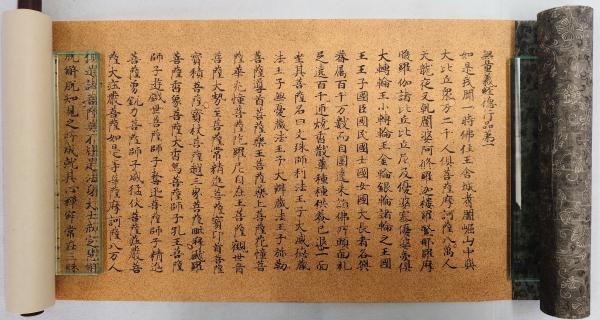 無量義経徳行品第一
如是我聞一時佛住王舎城耆闍崛山中與
大比丘衆万二千人倶菩薩摩訶薩八萬人
天龍夜叉乹闥婆阿脩羅迦樓羅緊那羅摩
睺羅伽諸比丘比丘尼及優婆塞優婆夷倶
大轉輪王小轉輪王金輪銀輪諸輪之王國
王王子國臣國民國士國女國大長者各與
眷属百千万數而自圍遶来詣佛所頭面礼
足遶百千迊燒香散華種種供養已退一面
坐其菩薩名曰文殊師利法王子大威徳藏
法王子無憂藏法王子大辯藏法王子弥勒
菩薩導首菩薩藥王菩薩藥上菩薩花幢菩
薩華光幢菩薩陁羅尼自在王菩薩觀世音
菩薩大勢至菩薩常精進菩薩寳印首菩薩
寳積菩薩寳杖菩薩越三界菩薩毗摩䟦羅
菩薩香象菩薩大香象菩薩師子吼王菩薩
師子遊戯世菩薩師子奮迅菩薩師子精進
菩薩勇鋭力菩薩師子威猛伏菩薩荘嚴菩
薩大荘嚴菩薩如是等菩薩摩訶薩八万人
倶是諸菩薩莫不皆是法身大士戒定慧解
脱解脱知見之所成就其心禅寂常在三昧